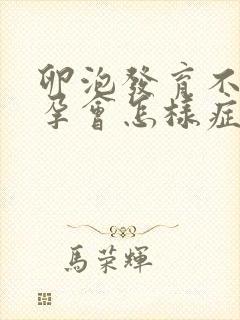 卵泡發育不
孕會怎樣症
馬荣輝